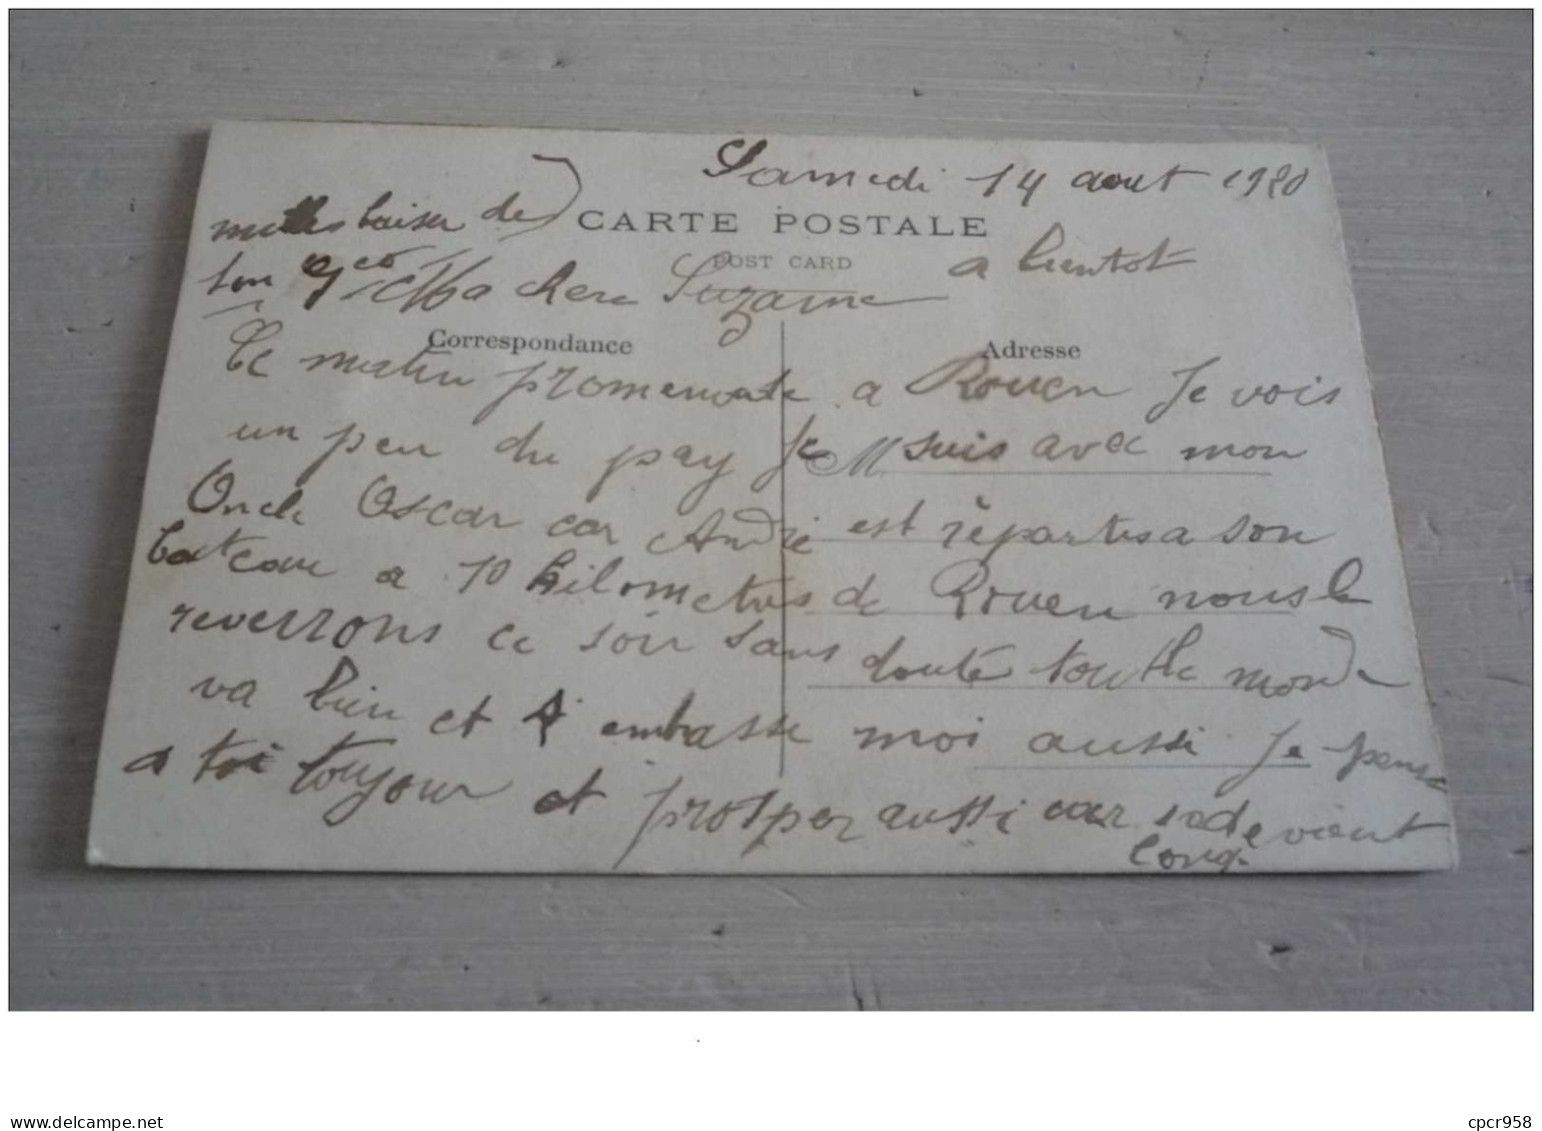 Samedi 14 aout 1920
milles baiser de
CARTE POSTALE
POST CARD
a bientot
ton Geo Ma chere Suzanne
Correspondance
Adresse
Ce matin promenade a Rouen Je vois
un peu du pay Je M suis avec mon
Oncle Oscar car André est répartis a son
bateau a 10 kilometres de Rouen nous le
reverrons ce soir sans doute tout le monde
va bien et t embasse moi aussi Je pense
a toi toujour et prosper aussi car sa devient
long
www.delcampe.net
cpcr958